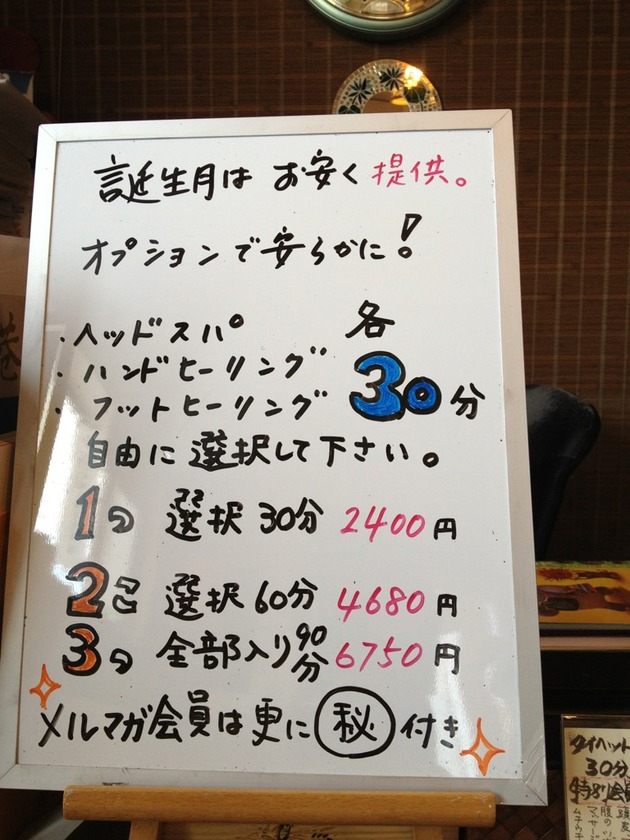 誕生月は お安く 提供。
オプションで安らかに!
・ヘッドスパ 各
・ハンドヒーリング 30分
・フットヒーリング
自由に選択して下さい。
1コ 選択 30分 2400円
2コ 選択 60分 4680円
3コ 全部入り 90分 6750円
メルマガ会員は更に ㊙ 付き
タイハット
30分
特別会員